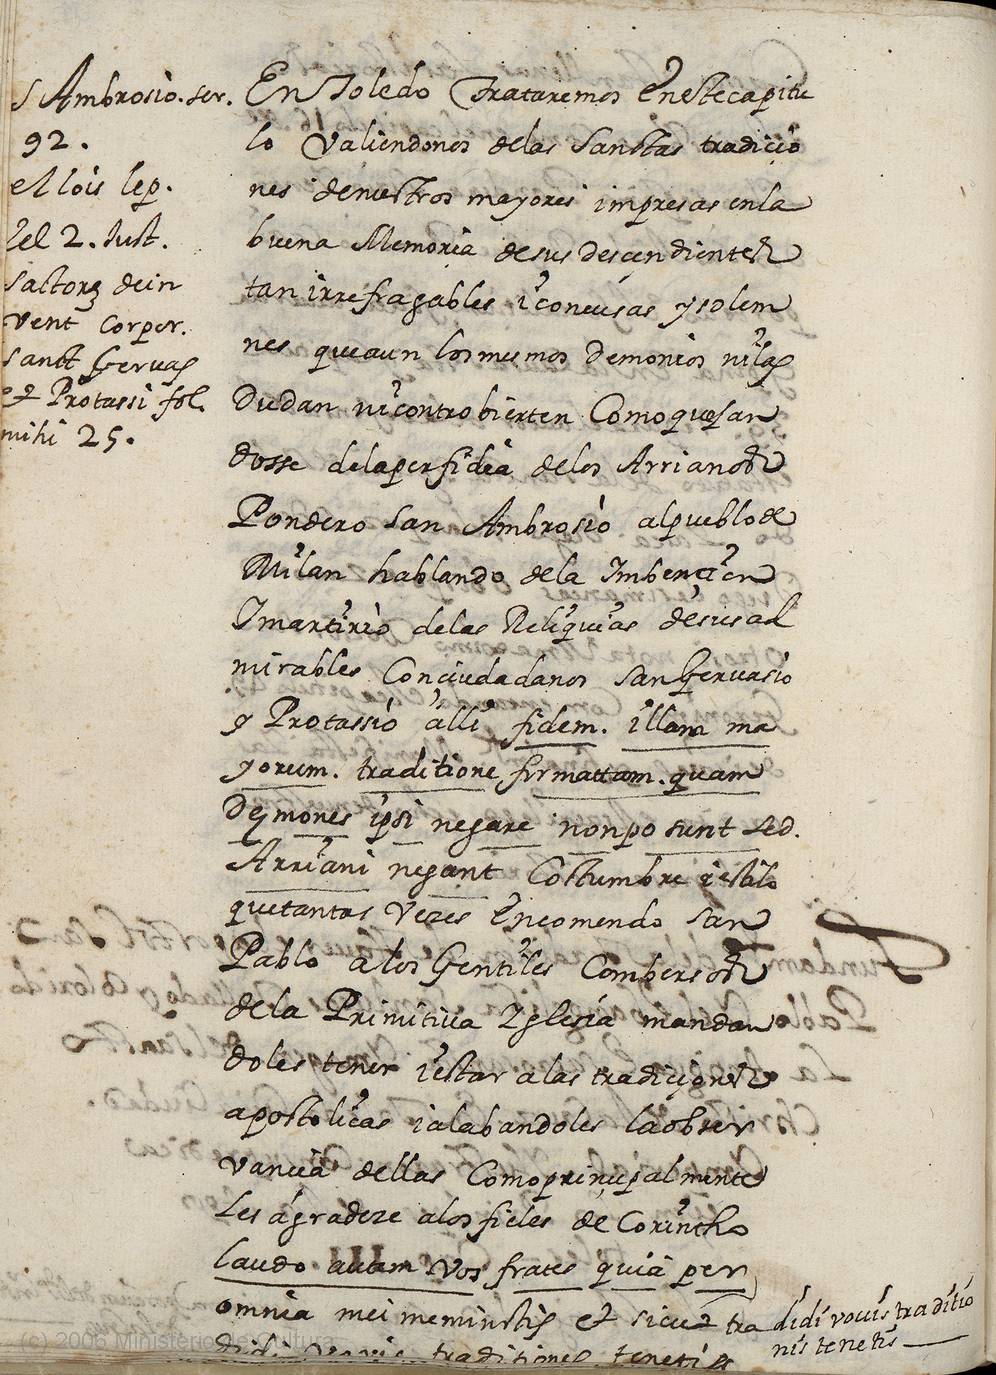 S Ambrosio. ser.
92.
et lois lep.
Sanct Gervas
et Protassi fol.
mihi 25.
En Toledo Trataremos Enestecapitu
lo Valiendonos delas Sanctas tradicio
nes denuestros mayores impresas enla
buena Memoria desus Descendientes
tan irrefragables iconcusas ysolem
nes queaun losmismos Demonios nilas
Dudan nicontrobierten Comoquejan
dosse delaperfidia delos Arrianos
Pondero San Ambrosio alpueblode
Milan hablando dela Imbencion
Imartirio delas Reliquias desusad
mirables Conciudadanos SanGervasio
y Protassio alli fidem. illam ma
yorum. traditione firmattam. quam
Demones ipsi negare nonpo sunt sed.
Arriani negant Costumbre iestilo
quetantas Vezes Encomendo San
Pablo alos Gentiles Combersos
dela Primitiva Iglesia mandan
doles tener iestar alas tradiciones
apostolicas ialabandoles laobser
vancia dellas Comoprincipalmente
Les agradeze alosfieles de Corintho
laudo autam Vos frates quia per
omnia mei meministis et sicut tra didi vovis traditio
nis tenetis
didi vovis traditiones tenetis
(c) 2006 Ministerio de Cultura